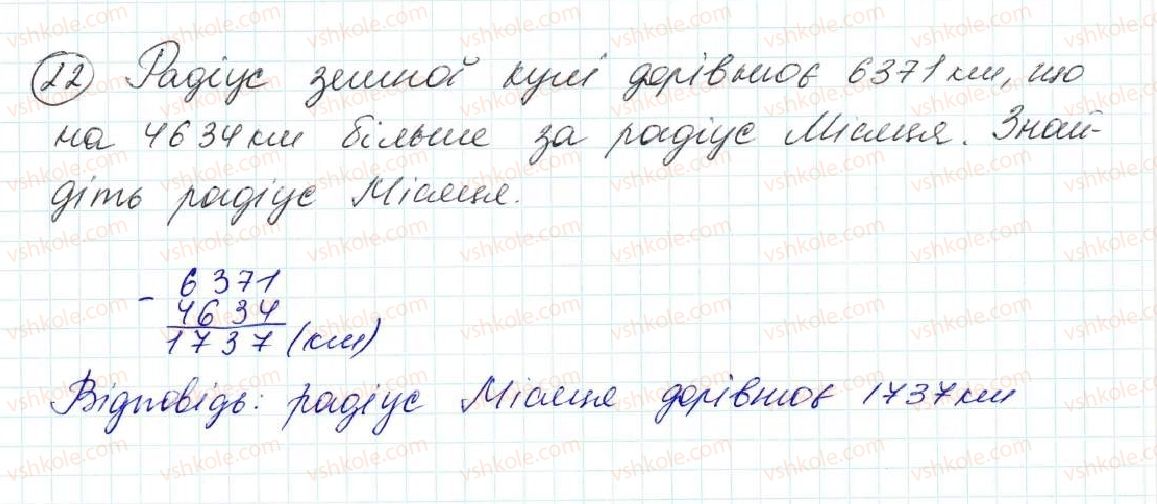 22 Радіус земної кулі дорівнює 6371 км, що
на 4634 км більше за радіус Місяця. Знай-
діть радіус Місяця.
- 6371
4634
1737 (км)
Відповідь: радіус Місяця дорівнює 1737 км